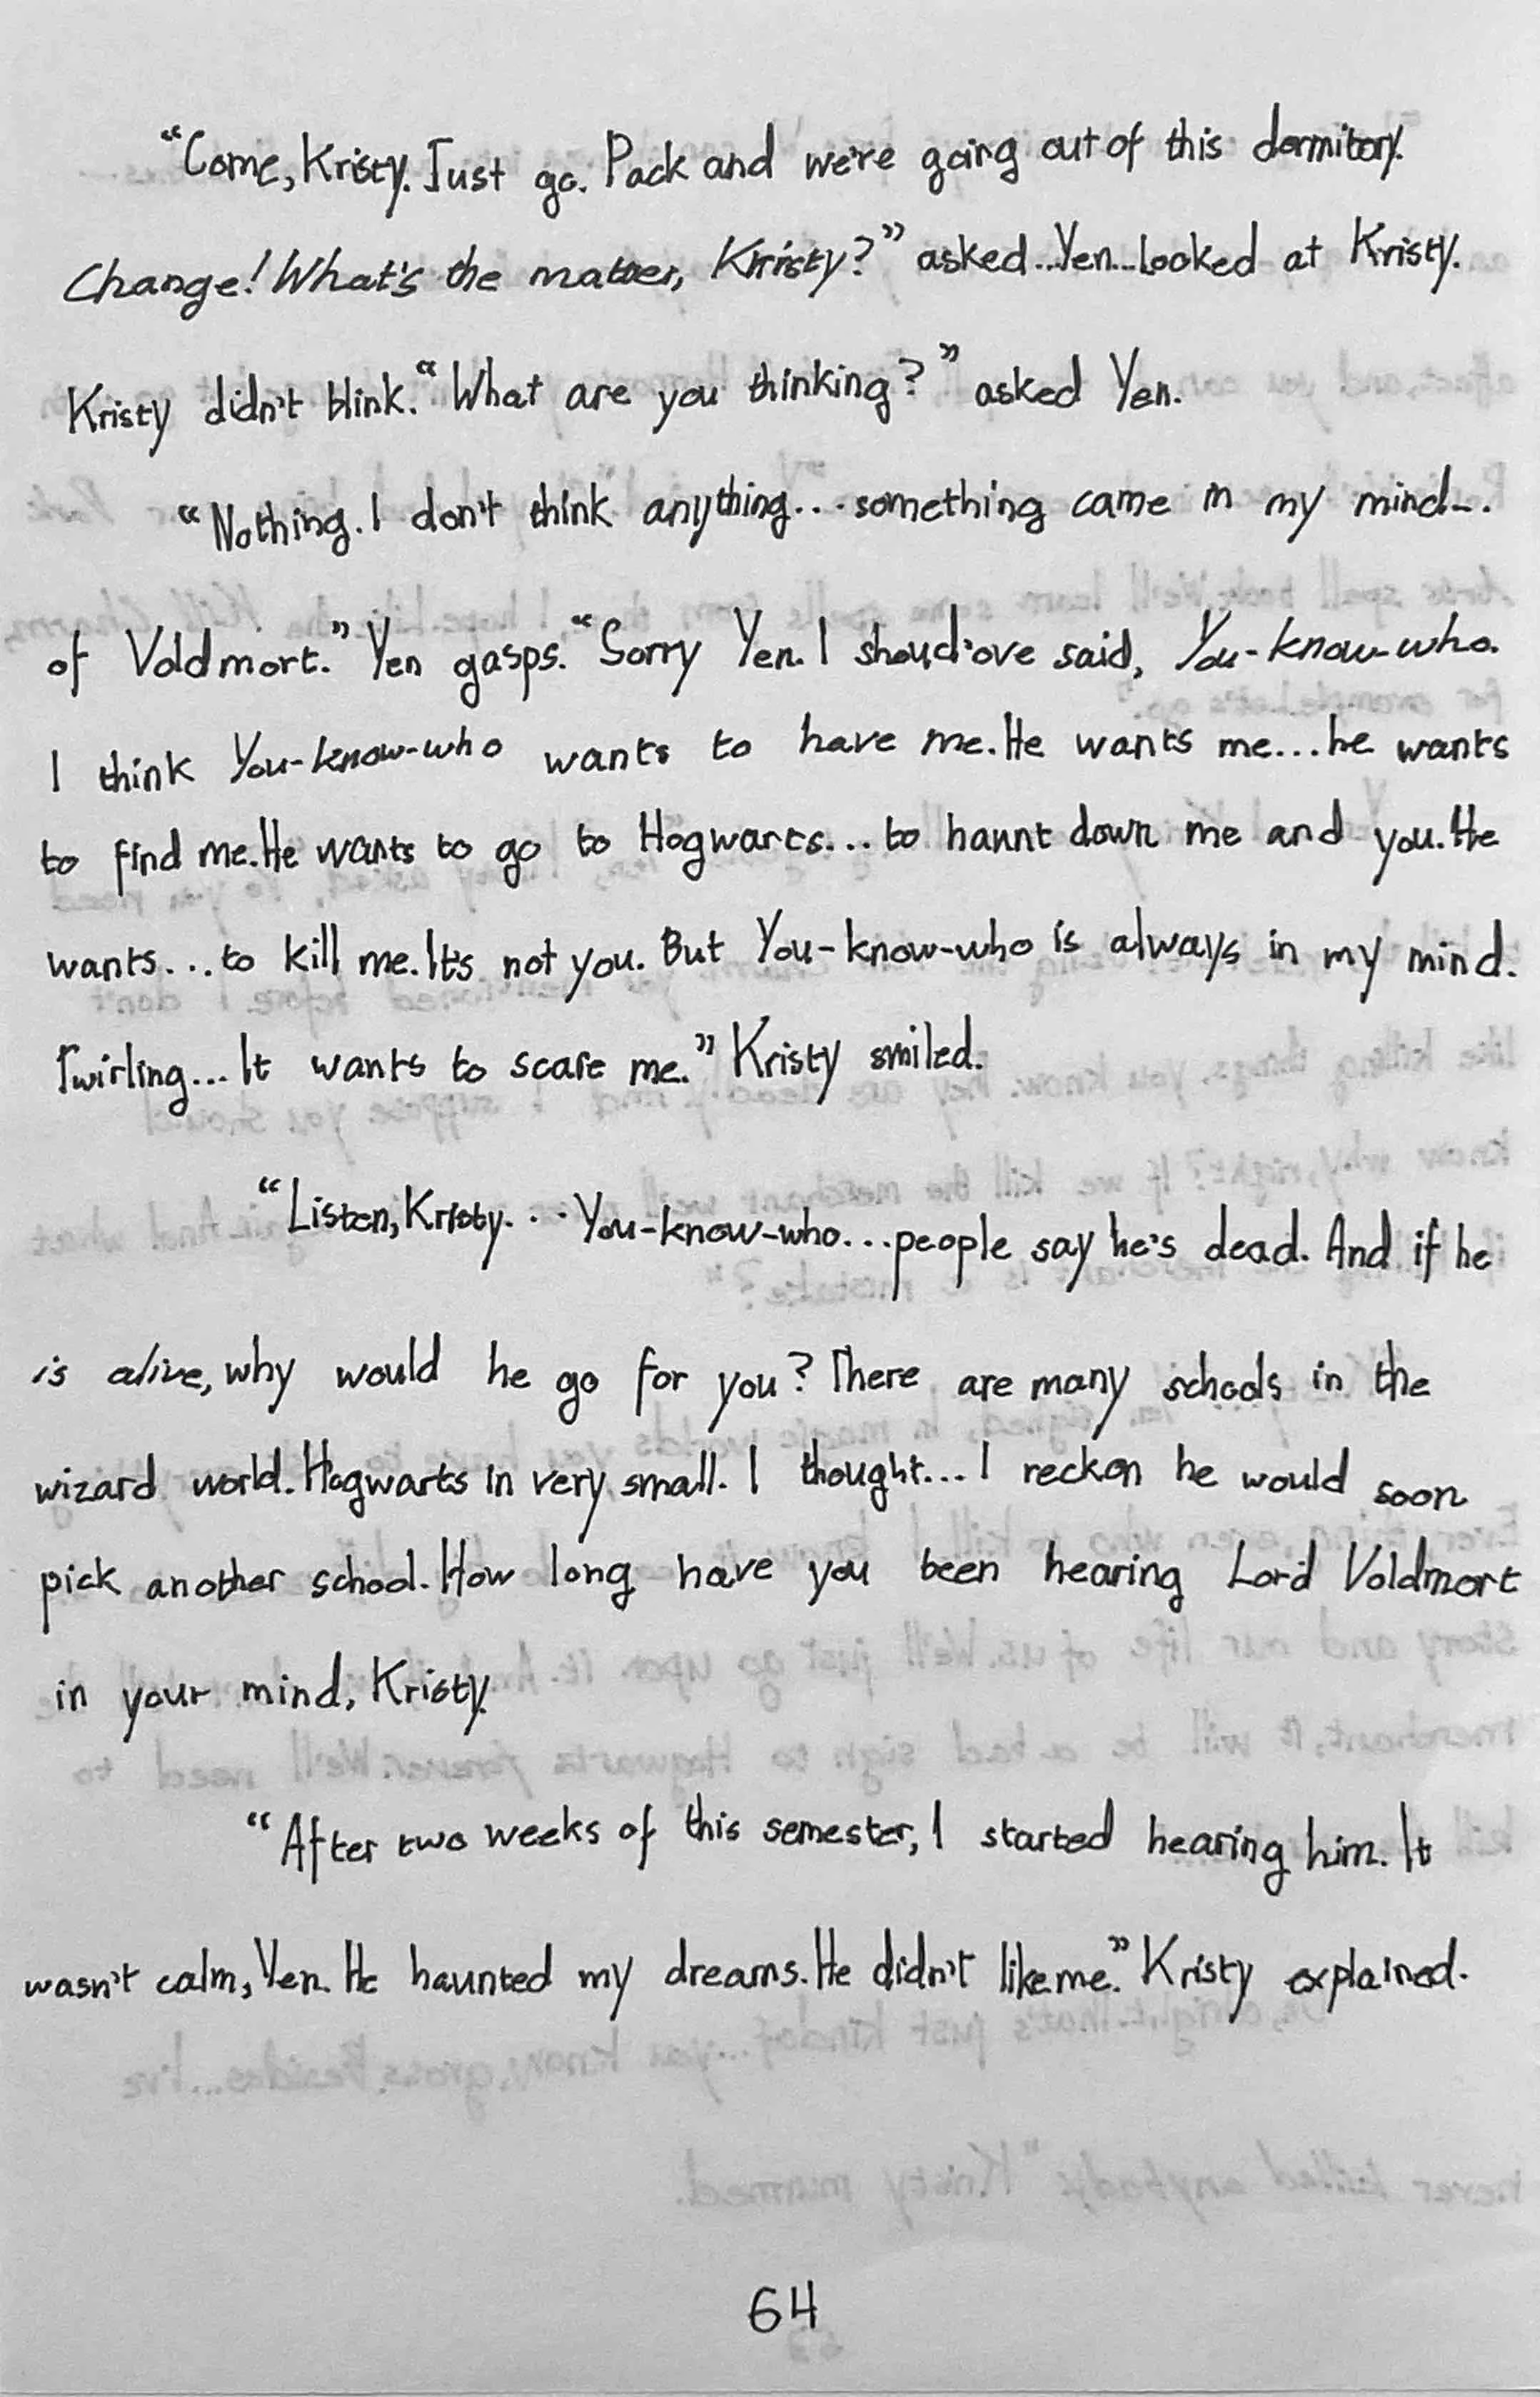 “Come, Kristy. Just go. Pack and we're going out of this dormitory.
Change! What's the matter, Kristy?” asked...Yen...looked at Kristy.
Kristy didn't blink. “What are you thinking?” asked Yen.
“Nothing. I don't think anything... something came in my mind...
of Voldmort.” Yen gasps. “Sorry Yen. I shoud'ove said, You-know-who.
I think You-know-who wants to have me. He wants me...he wants
to find me. He wants to go to Hogwarts... to haunt down me and you. He
wants...to kill me. It's not you. But You-know-who is always in my mind.
Twirling... It wants to scare me.” Kristy smiled.
“Listen, Kristy... You-know-who...people say he's dead. And if he
is alive, why would he go for you? There are many schools in the
wizard world. Hogwarts in very small. I thought... I reckon he would soon
pick another school. How long have you been hearing Lord Voldmort
in your mind, Kristy.
“After two weeks of this semester, I started hearing him. It
wasn't calm, Yen. He haunted my dreams. He didn't like me.” Kristy explained.
64